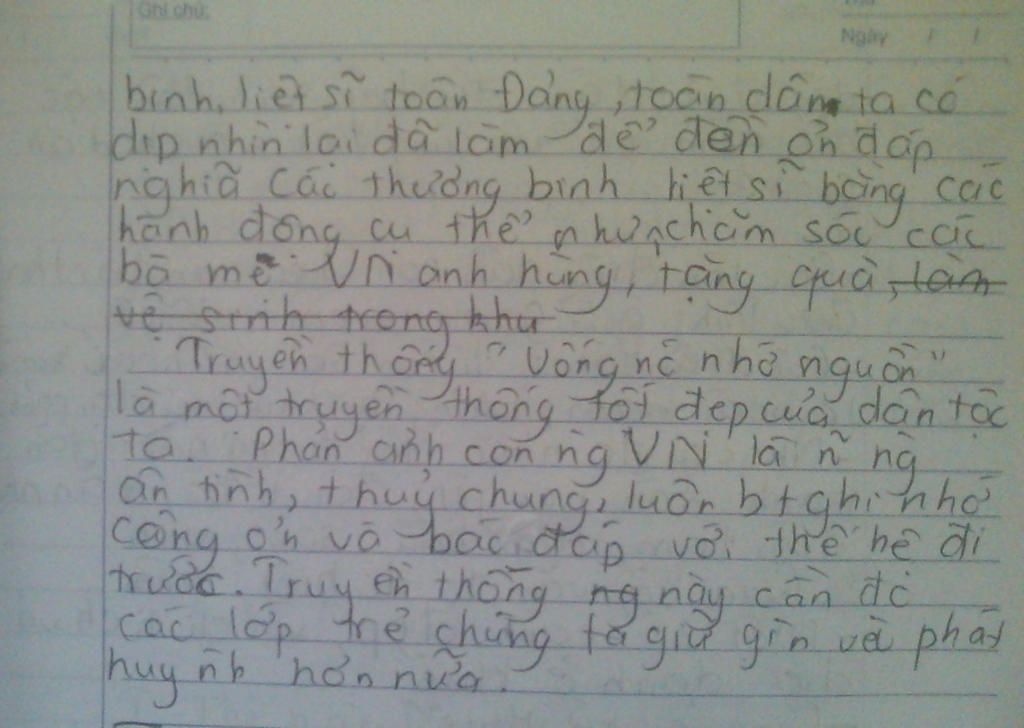 Ghi chú:
Ngày / /
binh, liệt sĩ toàn Đảng, toàn dân ta có
dịp nhìn lại đã làm để đền ơn đáp
nghĩa các thương binh liệt sĩ bằng các
hành động cụ thể như chăm sóc các
bà mẹ VN anh hùng, tặng quà, làm
vệ sinh trong khu
Truyền thống "Uống nc nhớ nguồn"
là một truyền thống tốt đẹp của dân tộc
ta. Phản ánh con ng VN là ~ ng
ân tình, thuỷ chung, luôn bt ghi nhớ
công ơn và bác đáp với thế hệ đi
trước. Truyền thống ng này cần đc
các lớp trẻ chúng ta giữ gìn và phát
huy nh hơn nữa.